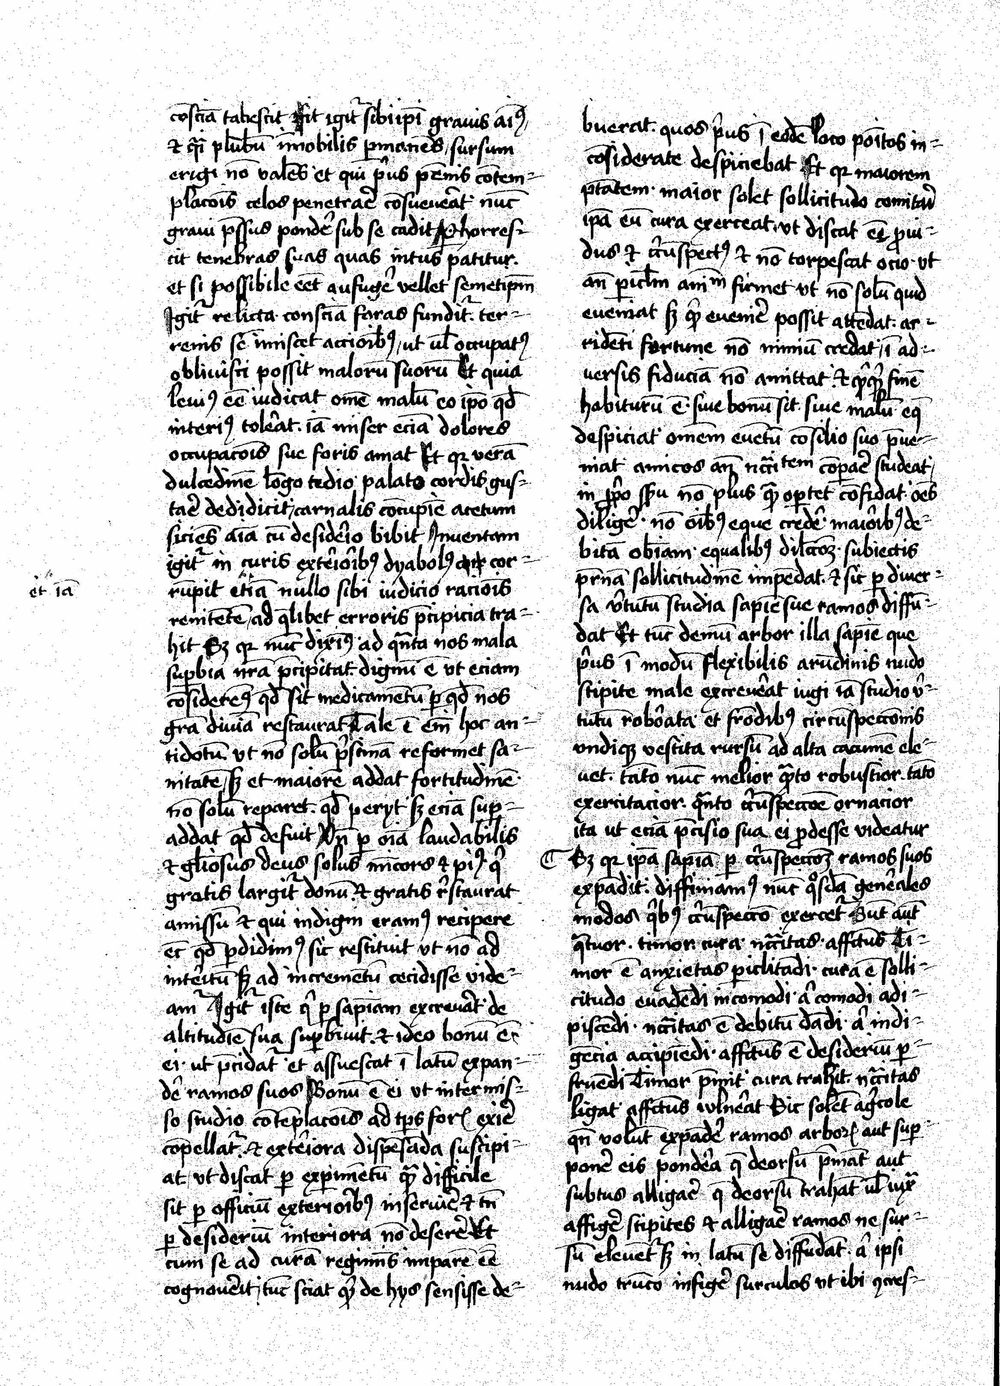 cōsciā tabescit Sit igit᷑ sibi ip̄i grauis aīꝰ
⁊ q̄i plūbū īmobilis ꝑmanēs sursum
erigi nō valēs et qui p̄us pēnis cōtem-
placōis celos penetrar̄ cōsueuēat nūc
graui p̄ssus pondē sub se cadit Ꝑhorres-
cit tenebras suas quas intus patitur.
et si possibile eēt aufugē vellet semetip̄m
Igit᷑ relicta consciā foras fundit᷑. ter-
renis sē īmiscet acciōibꝰ, ut ul̄ occupatꝰ
obliuisci possit malorū suorū Et quia
leuiꝰ eē iudicat om̄e malū eo ip̄o qd̄
interiꝰ tolēat. iā miser eciā dolores
occupacōis sue foris amat Et qꝛ verā
dulcedinē lōgo tedio palato cordis gus-
tar̄ dedidicit, carnalis cōcupiē acetum
siciēs aīa cū desidēio bibit Inuentam
igit᷑ in curis extēiōibꝰ dyabolꝰ cor-
rūpit et iā nullo sibi iudicio raciōis
renitētē, ad q̄libet erroris p̄cipicia tra-
hit Sꝫ qꝛ nūc diximꝰ ad q̄nta nos mala
suꝑbia nr̄a p̄cipitat. dignū ē vt eciam
cōsideremꝰ qd̄ sit medicamētū ꝑ qd̄ nos
gr̄a diuīa restaurat Tale ē em̄ hoc an-
tidotū vt nō solū p̄stinā reformet sa-
nitatē, sꝫ et maiorē addat fortitudinē
nō solū reparet. qd̄ peryt sꝫ eciā suꝑ-
addat qd̄ defuit Vn̄ ꝑ oīa laudabilis
⁊ gl̄iosus deus solus mīcors ⁊ piꝰ q̄
gratis largit᷑ donū. ⁊ gratis r̄staurat
amissū ⁊ qui indigni eramꝰ recipere
et qd̄ ꝑdidimꝰ sic restituit vt nō ad
intēitū sꝫ ad incremētū cecidisse vide-
am᷑ Igit᷑ iste q̄ ꝑ sapiam excreuāt de
altitudiē sua suꝑbiuit. ⁊ ideo bonū ē
ei. ut p̄cidat᷑ et assuescat ī latū expan-
dē ramos suos Bonū ē ei vt intermis-
so studio cōtēplacōis ad tp̄s foris exir̄
cōpellat᷑. ⁊ extēiora dispēsāda suscipi-
at. vt discat ꝑ exꝑimētū q̄ difficile
sit ꝑ officiū extēiōibꝰ inseruir̄ ⁊ tn̄
ꝑ desideriū interiora nō deserē Et
cum se ad curā regiminis imparē eē
cognouēit, tūc sciat q̄ de hys sensisse de-
et iā
buerat. quos p̄us ī eodē loco poītos in-
cōsiderate despiciebat Et qꝛ maiorem
p̄tatem. maior solet sollicitudo comitar̄
ip̄a eū cura exerceat. vt discat eē ꝓui-
dus ⁊ circūspectꝰ ⁊ nō torpescat ocio. vt
an̄ ꝑiclm̄ anīm firmet vt nō solū quid
eueniat sꝫ q̄ euenir̄ possit attēdat. ar-
ridēti fortune nō nimiū credat, ī ad-
versis fiduciā nō amittat. ⁊ q̄cq̄ finē
habiturū ē. siue bonū sit. siue malū eq̄
despiciat omem euētū cōsilio suo p̄ue-
niat amicos an̄ nc̄citem cōpar̄ studeat,
in p̄ro sp̄u nō plus q̄ oꝑtet cōfidat. oēs
diligē. nō oībꝰ eque credē. maiōibꝰ de-
bitā obīam. equalibꝰ dilcōꝫ. subiectis
pr̄nā sollicitudinē impēdat. ⁊ sic ꝑ diuer-
sa v̄tutū studia sapiē sue ramos diffū-
dat Et tūc demū arbor illa sapiē que
p̄us ī modū flexibilis arūdinis nudo
stipite male excreuēat iugi iā studio v̄-
tutū robōata et frōdibꝰ circūspeccōnis
vndiqꝫ vestita rursū ad alta cacumē ele-
uet. tāto nūc melior q̄to robustior. tāto
exercitacior. q̄nto circūspeccōe ornacior
ita ut eciā p̄cisio sua ei ꝓdesse videatur
Sꝫ qꝛ ip̄a sapiā ꝑ circūspeccōꝫ ramos suos
expādit. diffiniamꝰ nūc q̄sdā genēales
modos q̄bꝰ circūspeccō exercet᷑ Sunt aut̄
q̄tuor. timor. cura. nc̄citas. affctūs Ti-
mor ē anxietas ꝑiclitādi. cura ē solli-
citudo euadēdi incomodi. ā comodi adi-
piscēdi. nc̄citas ē debitū dādi. ā indi-
gēcia accipiēdi. affctūs ē desideriū ꝑ-
fruēdi Timor p̄mit. cura trahit. nc̄citas
ligat. affctūs vulnēat Sic solēt agͥcole
qn̄ volūt expādē ramos arboꝝ aut suꝑ-
ponē eis pondēa q̄ deorsū p̄māt aut
subtus alligar̄ q̄ deorsū trahāt ul̄ iux̄
affigē stipites ⁊ alligar̄ ramos ne sur-
sū eleuēt᷑ sꝫ in latū se diffūdāt. ā ipsi
nudo trūco infigē surculos vt ibi ꝯcres-